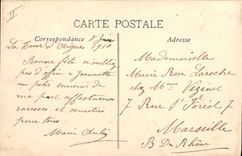 II
CARTE POSTALE
Correspondance
Adresse
8 Juin 1910
La Tour d'Aigues
Bonne fête n'oubliez
pas d'offrir à Jeannette
un petit souvenir de
ma part affectueuses
caresses et amitiés
pour tous.
Marie
Mademoiselle
Marie Rose Laroche
chez Mme Vezinet
7 Rue St Féréol 7
Marseille
B. du Rhône